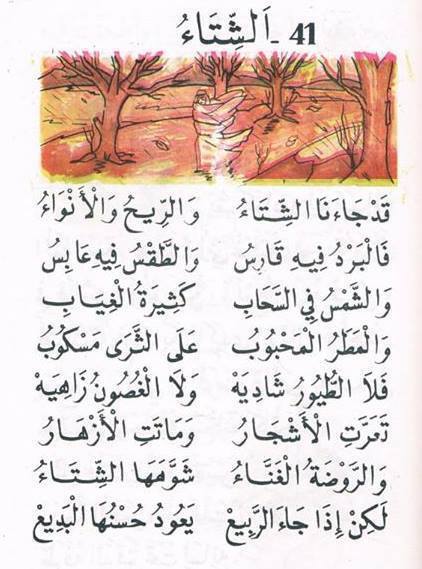 41 - اَلشِّتَاءُ
قَدْ جَاءَنَا الشِّتَاءُ وَالرِّيحُ وَالْأَنْوَاءُ
فَالْبَرْدُ فِيهِ قَارِسُ وَالطَّقْسُ فِيهِ عَابِسُ
وَالشَّمْسُ فِي السَّحَابِ كَثِيرَةُ الْغِيَابِ
وَالْمَطَرُ الْمَحْبُوبُ عَلَى الثَّرَى مَسْكُوبُ
فَلَا الطُّيُورُ شَادِيَهْ وَلَا الْغُصُونُ زَاهِيَهْ
تَعَرَّتِ الْأَشْجَارُ وَمَاتَتِ الْأَزْهَارُ
وَالرَّوْضَةُ الْغَنَّاءُ شَوَّهَهَا الشِّتَاءُ
لَكِنْ إِذَا جَاءَ الرَّبِيعْ يَعُودُ حُسْنُهَا الْبَدِيعْ